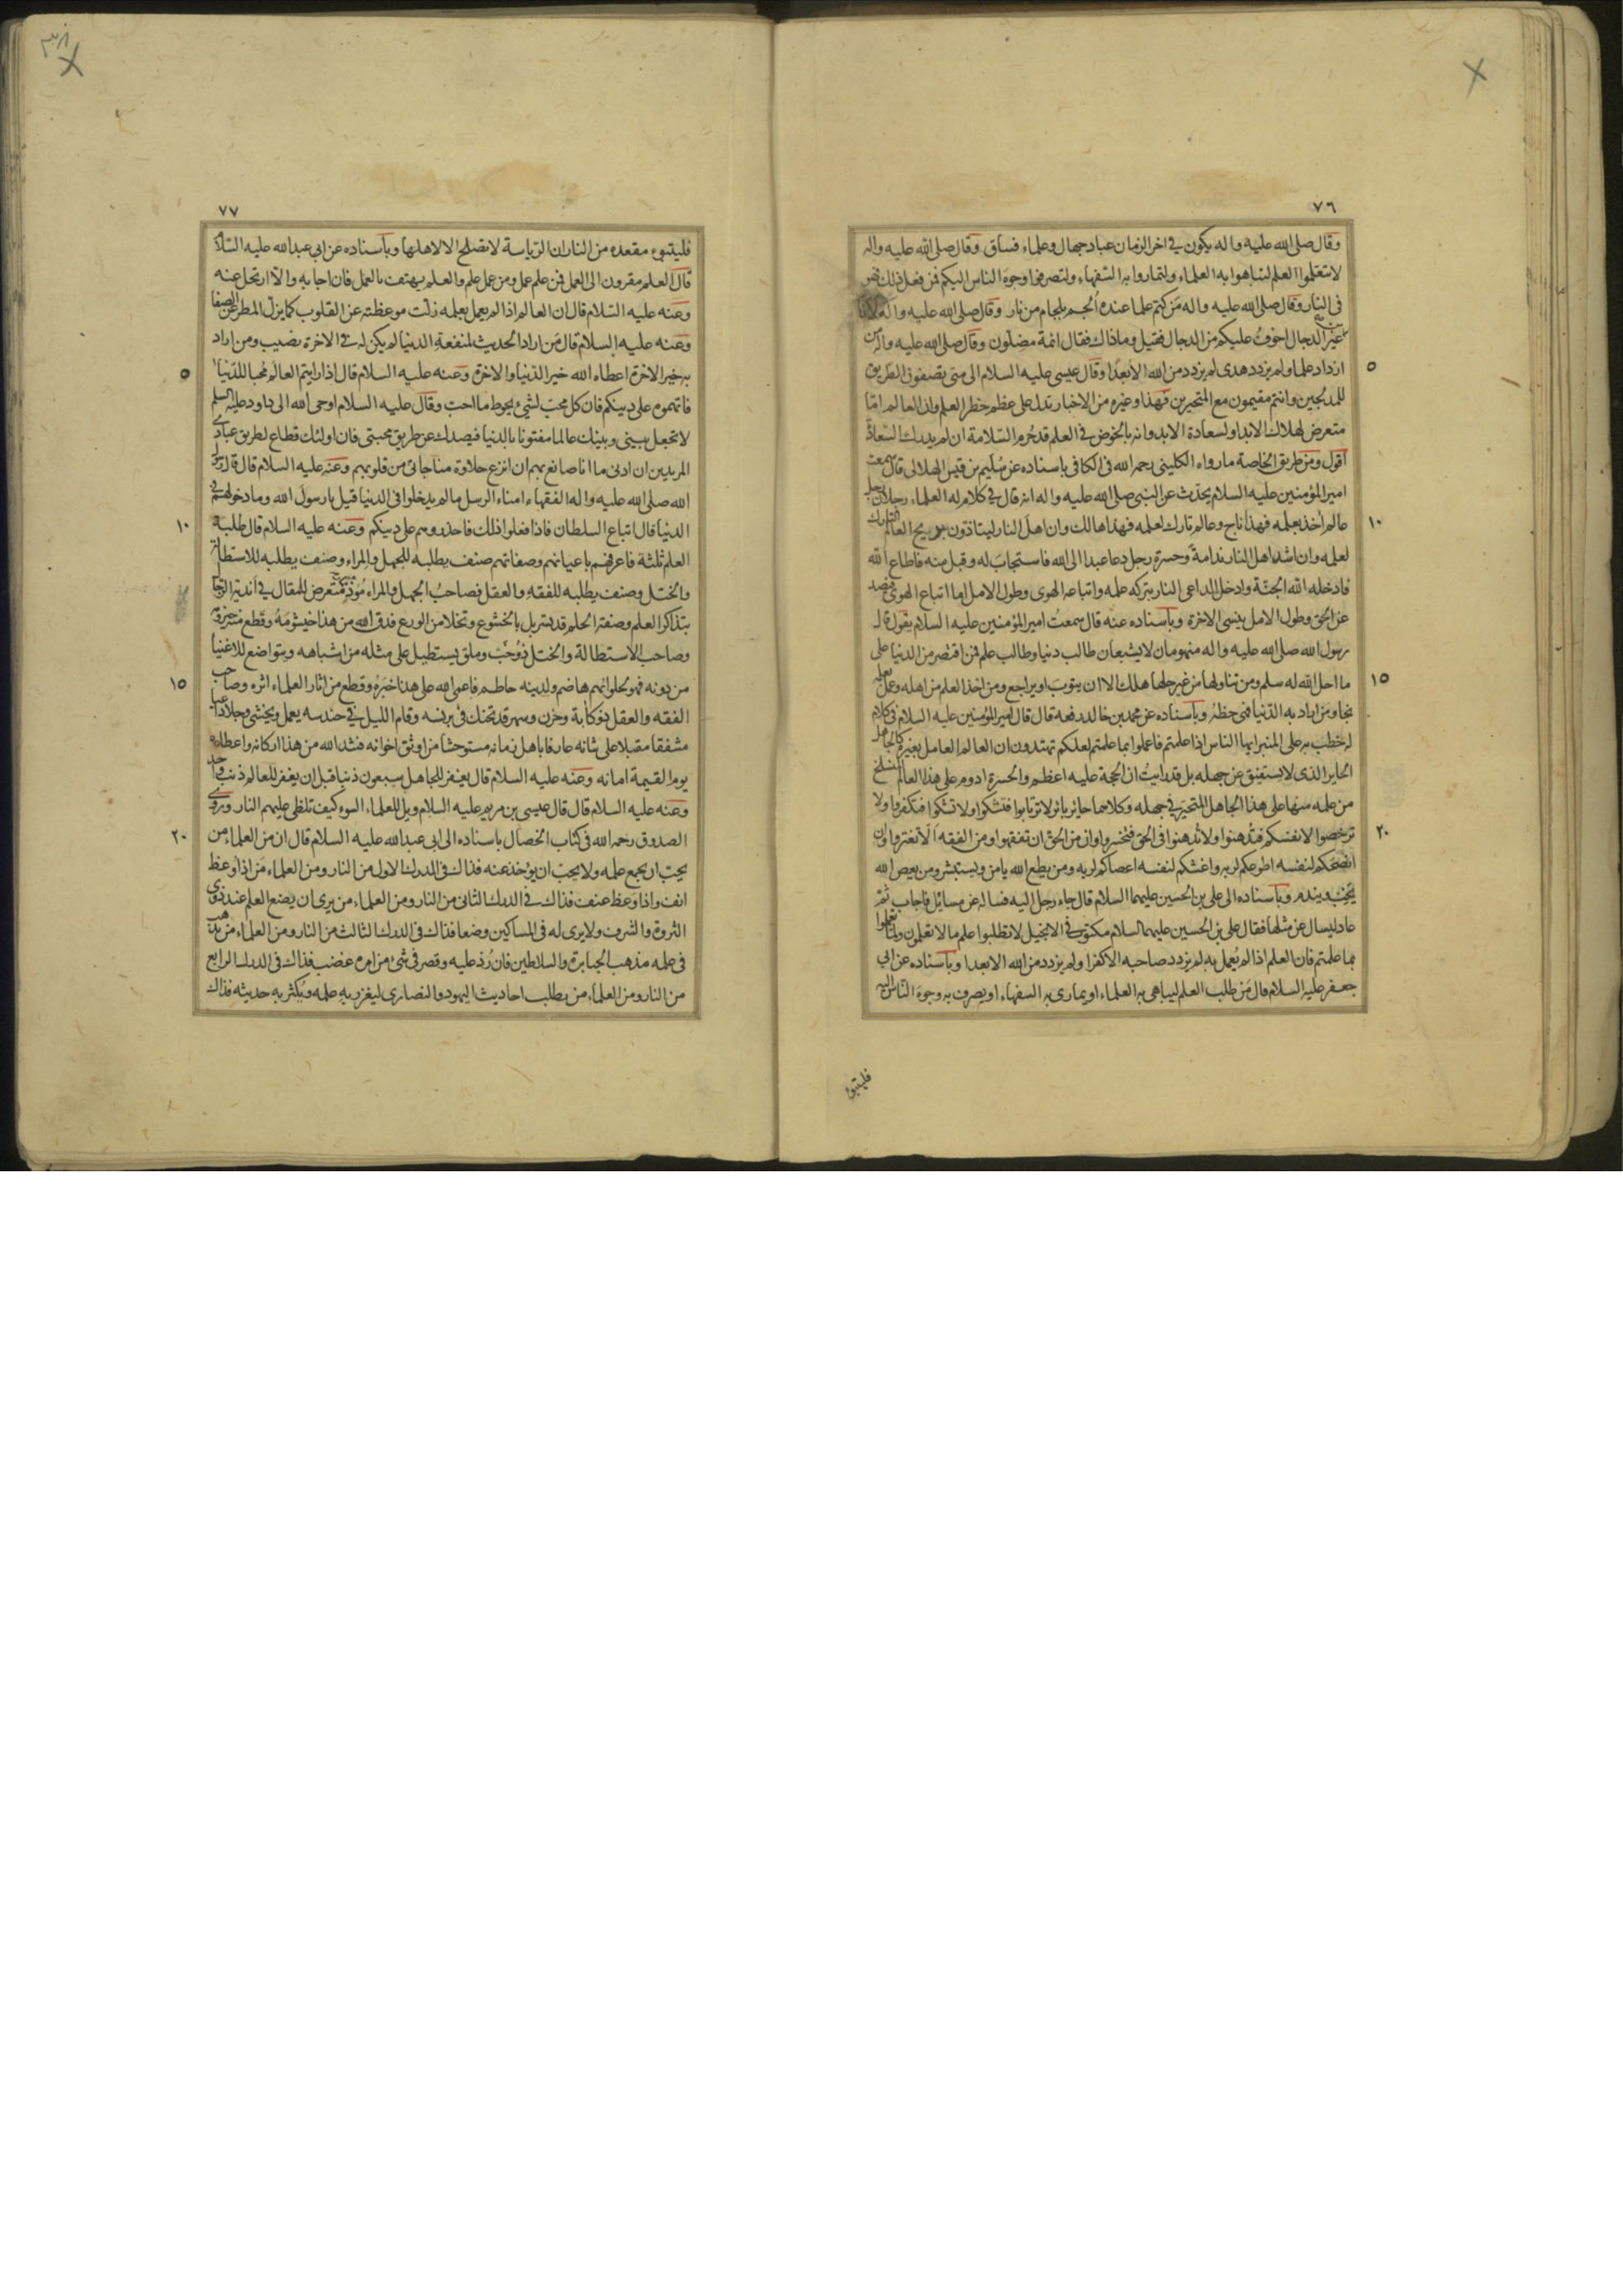 ٧٦
وقال صلى الله عليه واله يكون في اخر الزمان عباد جهال وعلماء فساق وقال صلى الله عليه واله
لا تتعلموا العلم لتباهوا به العلماء ولتماروا به السفهاء ولتصرفوا وجوه الناس اليكم فمن فعل ذلك فهو
في النار وقال صلى الله عليه واله من كتم علما عنده الجم بلجام من نار وقال صلى الله عليه واله لانا
غير الدجال اخوف عليكم من الدجال فقيل وماذاك فقال ائمة مضلون وقال صلى الله عليه واله من
٥
ازداد علما ولم يزدد هدى لم يزدد من الله الا بعدا وقال عيسى عليه السلام الى متى تصفون الطريق
للمدلجين وانتم مقيمون مع المتحيرين فهذا وغيره من الاخبار تدل على عظم خطر العلم وان العالم اما
متعرض لهلاك الابد او لسعادة الابد وانه بالخوض في العلم قد حرم السلامة ان لم يدرك السعادة
اقول ومن طريق الخاصة ما رواه الكليني رحمه الله في الكافي باسناده عن سليم بن قيس الهلالى قال سمعت
امير المؤمنين عليه السلام يحدث عن النبي صلى الله عليه واله انه قال في كلام له العلماء رجلان رجل
١٠
عالم اخذ بعلمه فهذا ناج وعالم تارك لعلمه فهذا هالك وان اهل النار ليتاذون من ريح العالم التارك
لعلمه وان اشد اهل النار ندامة وحسرة رجل دعا عبدا الى الله فاستجاب له وقبل منه فاطاع الله
فادخله الله الجنة وادخل الداعى النار بتركه علمه واتباعه الهوى وطول الامل اما اتباع الهوى فيصد
عن الحق وطول الامل ينسى الاخرة وباسناده عنه قال سمعت امير المؤمنين عليه السلام يقول قال
رسول الله صلى الله عليه واله منهومان لا يشبعان طالب دنيا وطالب علم فمن اقتصر من الدنيا على
١٥
ما احل الله له سلم ومن تناولها من غير حلها هلك الا ان يتوب او يراجع ومن اخذ العلم من اهله وعمل بعلمه
نجا ومن اراد به الدنيا فهى حظه وباسناده عن محمد بن خالد رفعه قال قال امير المؤمنين عليه السلام في كلام
له خطب به على المنبر ايها الناس اذا علمتم فاعملوا بما علمتم لعلكم تهتدون ان العالم العامل بغيره كالجاهل
الحاير الذى لا يستفيق عن جهله بل قد رايت ان الحجة عليه اعظم والحسرة ادوم على هذا العالم المنسلخ
من علمه منها على هذا الجاهل المتحير في جهله وكلاهما حائر بائر لا ترتابوا فتشكوا ولا تشكوا فتكفروا ولا
٢٠
ترخصوا لانفسكم فتدهنوا ولا تدهنوا في الحق فتخسروا وان من الحق ان تفقهوا ومن الفقه الا تغتروا وان
انصحكم لنفسه اطوعكم لربه واغشكم لنفسه اعصاكم لربه ومن يطع الله يامن ويستبشر ومن يعص الله
يخب ويندم وباسناده الى على بن الحسين عليهما السلام قال جاء رجل اليه فساله عن مسائل فاجاب ثم
عاد ليسال عن مثلها فقال على بن الحسين عليهما السلام مكتوب في الانجيل لا تطلبوا علم ما لا تعلمون ولما تعملوا
بما علمتم فان العلم اذا لم يعمل به لم يزدد صاحبه الا كفرا ولم يزدد من الله الا بعدا وباسناده عن ابي
جعفر عليه السلام قال من طلب العلم ليباهى به العلماء او يمارى به السفهاء او يصرف به وجوه الناس اليه
فليتبوء
٣٨
٧٧
فليتبوء مقعده من النار ان الرياسة لا تصلح الا لاهلها وباسناده عن ابي عبد الله عليه السلام
قال العلم مقرون الى العمل فمن علم عمل ومن عمل علم والعلم يهتف بالعمل فان اجابه والا ارتحل عنه
وعنه عليه السلام قال ان العالم اذا لم يعمل بعلمه زلت موعظته عن القلوب كما يزل المطر عن الصفا
وعنه عليه السلام قال من اراد الحديث لمنفعة الدنيا لم يكن له في الاخرة نصيب ومن اراد
٥
به خير الاخرة اعطاه الله خير الدنيا والاخرة وعنه عليه السلام قال اذا رايتم العالم محبا للدنيا
فاتهموه على دينكم فان كل محب لشيء يحوط ما احب وقال عليه السلام اوحى الله الى داود عليه السلم
لا تجعل بينى وبينك عالما مفتونا بالدنيا فيصدك عن طريق محبتى فان اولئك قطاع لطريق عبادى
المريدين ان ادنى ما انا صانع بهم ان انزع حلاوة مناجاتى من قلوبهم وعنه عليه السلام قال قال رسول
الله صلى الله عليه واله الفقهاء امناء الرسل ما لم يدخلوا في الدنيا قيل يا رسول الله وما دخولهم في
١٠
الدنيا قال اتباع السلطان فاذا فعلوا ذلك فاحذروهم على دينكم وعنه عليه السلام قال طلبة
العلم ثلثة فاعرفهم باعيانهم وصفاتهم صنف يطلبه للجهل والمراء وصنف يطلبه للاستطالة
والختل وصنف يطلبه للفقه والعقل فصاحب الجهل والمراء موذ متعرض للمقال في اندية الرجال
بتذاكر العلم وصفة الحلم قد تسربل بالخشوع وتخلا من الورع فدق الله من هذا خيشومه وقطع منه حيزومه
وصاحب الاستطالة والختل ذو خب وملق يستطيل على مثله من اشباهه ويتواضع للاغنيا
١٥
من دونه فهو لحلوائهم هاضم ولدينه حاطم فاعمى الله على هذا خبره وقطع من اثار العلماء اثره وصاحب
الفقه والعقل ذو كابة وحزن وسهر قد تحنك في برنسه وقام الليل في حندسه يعمل ويخشى وجلا داعيا
مشفقا مقبلا على شانه عارفا باهل زمانه مستوحشا من اوثق اخوانه فشد الله من هذا اركانه واعطاه
يوم القيمة امانه وعنه عليه السلام قال يغفر للجاهل سبعون ذنبا قبل ان يغفر للعالم ذنب واحد
وعنه عليه السلام قال قال عيسى بن مريم عليه السلام ويل للعلماء السوء كيف تلظى عليهم النار وروى
٢٠
الصدوق رحمه الله في كتاب الخصال باسناده الى ابى عبد الله عليه السلام قال ان من العلماء من
يحب ان يجمع علمه ولا يحب ان يؤخذ عنه فذاك في الدرك الاول من النار ومن العلماء من اذا وعظ
انف واذا وعظ عنف فذاك في الدرك الثانى من النار ومن العلماء من يرى ان يضع العلم عند ذوى
الثروة والشرف ولا يرى له في المساكين وضعا فذاك في الدرك الثالث من النار ومن العلماء من يذهب
في علمه مذهب الجبابرة والسلاطين فان رد عليه وقصر في شئ من امره غضب فذاك في الدرك الرابع
من النار ومن العلماء من يطلب احاديث اليهود والنصارى ليغزر به علمه ويكثر به حديثه فذاك